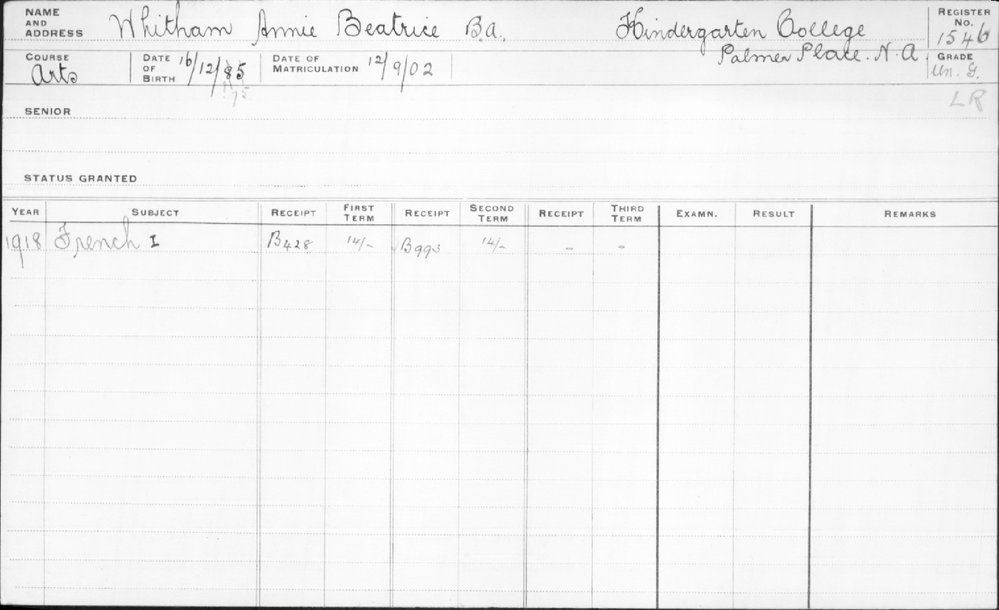 NAME AND ADDRESS Whitham Annie Beatrice B.A. Kindergarten College REGISTER No. 1546
Palmer Place. N. A.
COURSE Arts DATE OF BIRTH 16/12/85 DATE OF MATRICULATION 12/9/02 GRADE Un. G.
75
LR
SENIOR
STATUS GRANTED
YEAR SUBJECT RECEIPT FIRST TERM RECEIPT SECOND TERM RECEIPT THIRD TERM EXAMN. RESULT REMARKS
1918 French I B428 14/- B993 14/- - -